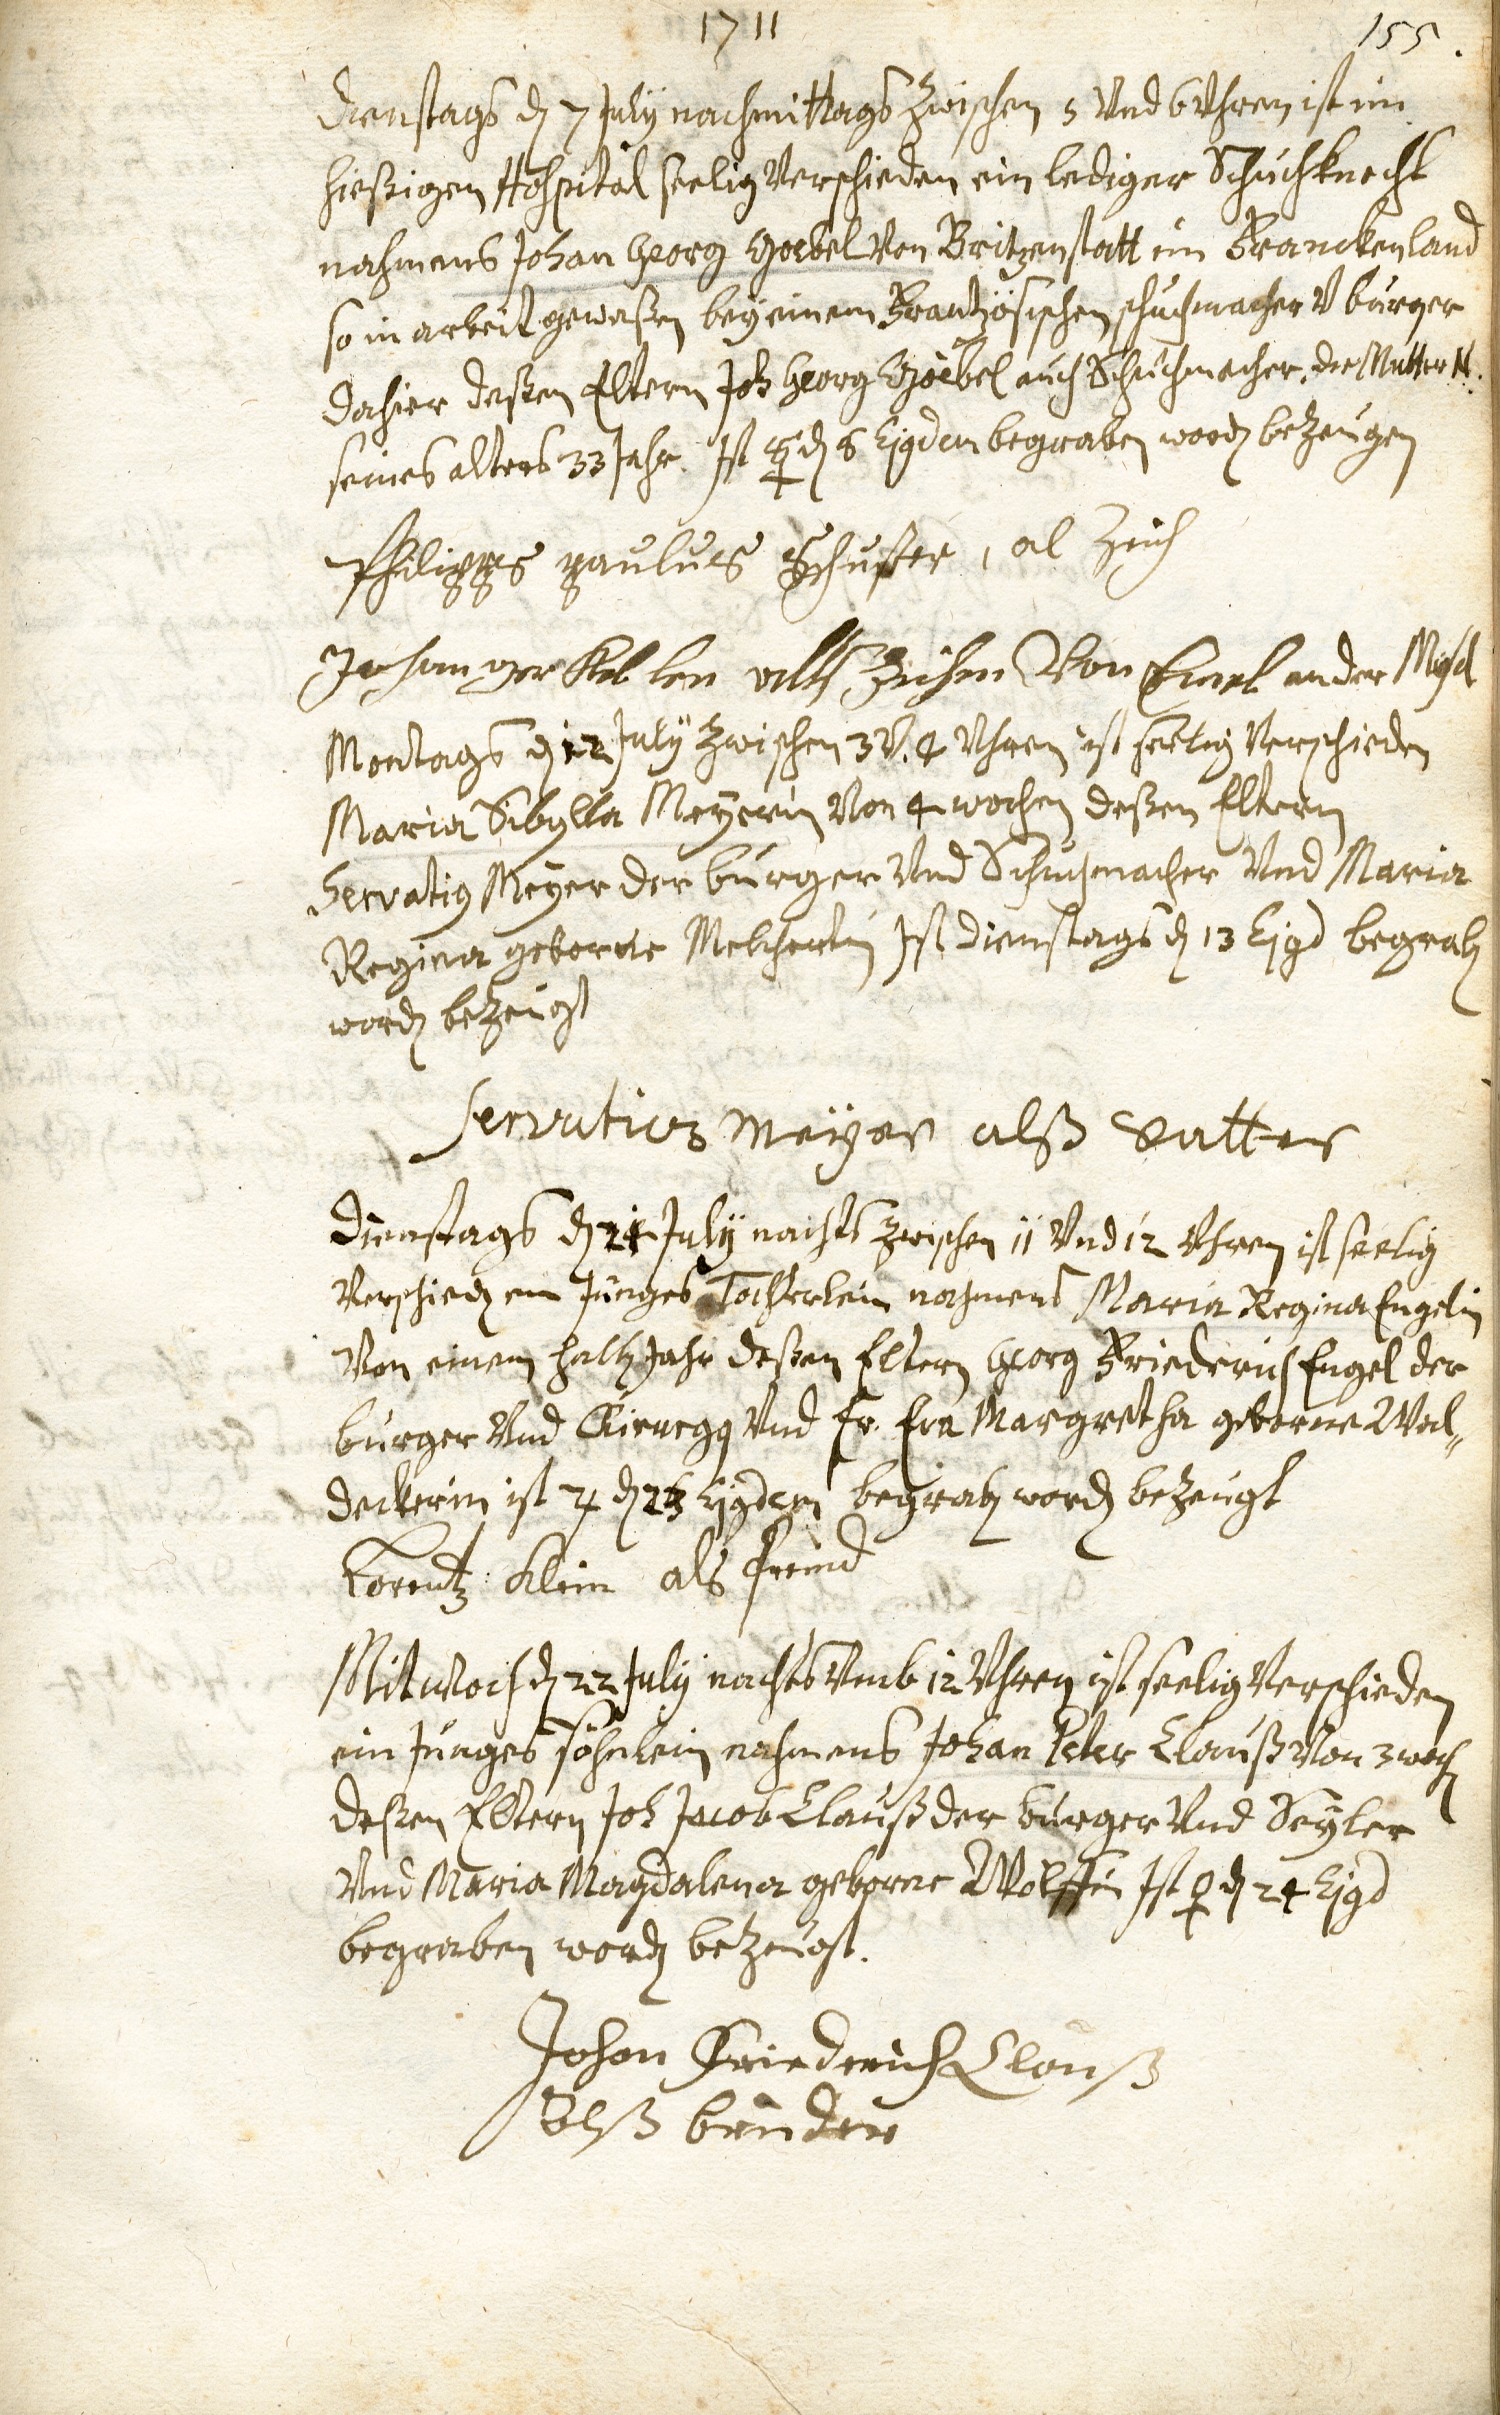 1711
155.
Dienstags d 7 July nachmittags zwischen 5 Vnd 6 Vhren ist im
hießigen Hospital seelig Verschieden ein lediger Schuchknecht
nahmens Johan Georg Goebel Von Britzenstatt im Franckenland
so in arbeit geweßen bey einem Frantzösischen schuchmacher V burger
dahier deßen Eltern Joh Georg Goebel auch Schuchmacher, die Mutter N.
seines alters 33 Jahr. Ist ☿ d 8 Ejgdem begraben word bezeugen
Philipps paulus Schuster, al Zeich
Johan alß Zeichen Von ander
Montags d 12 July zwischen 3 V. 4 Vhren ist seelig Verschieden
Maria Sibylla Meyerin Von 4 wochen deßen Eltern
Servatig Meyer der burger Vnd Schuchmacher Vnd Maria
Regina geborne Melcherin Ist dienstags d 13 Ejgd begrab
word bezeugt
Servatius Meyer alß Vatter
Dienstags d 21 July nachts zwischen 11 Vnd 12 Vhren ist seelig
Verschied ein Junges Tochterlein nahmens Maria Regina Engelin
Von einem halb Jahr deßen Eltern Georg Friederich Engel der
burger Vnd Chirurgg Vnd Fr. Eva Margretha geborne Wal„
deckerin ist ♃ d 23 Ejgdem begrab word bezeugt
Lorentz Klein als freind
Mitwoch d 22 July nachts Vmb 12 Vhren ist seelig Verschieden
ein Junges söhnlein nahmens Johan Peter Clauß Von 3 woch
deßen Eltern Joh Jacob Clauß der burger Vnd Seyler
Vnd Maria Magdalena geborne Wolffin Ist ♀ d 24 Ejgd
begraben word bezeugt.
Johan Friedrich Clauß
Alß bruder